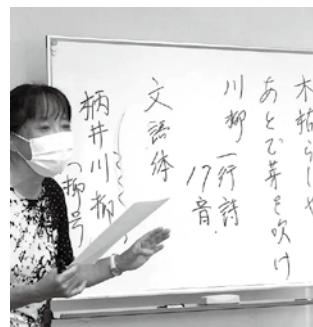 木枯らしや
あとで芽を吹け
川柳一行詩
17音
文語体
柄井川柳
(柳号